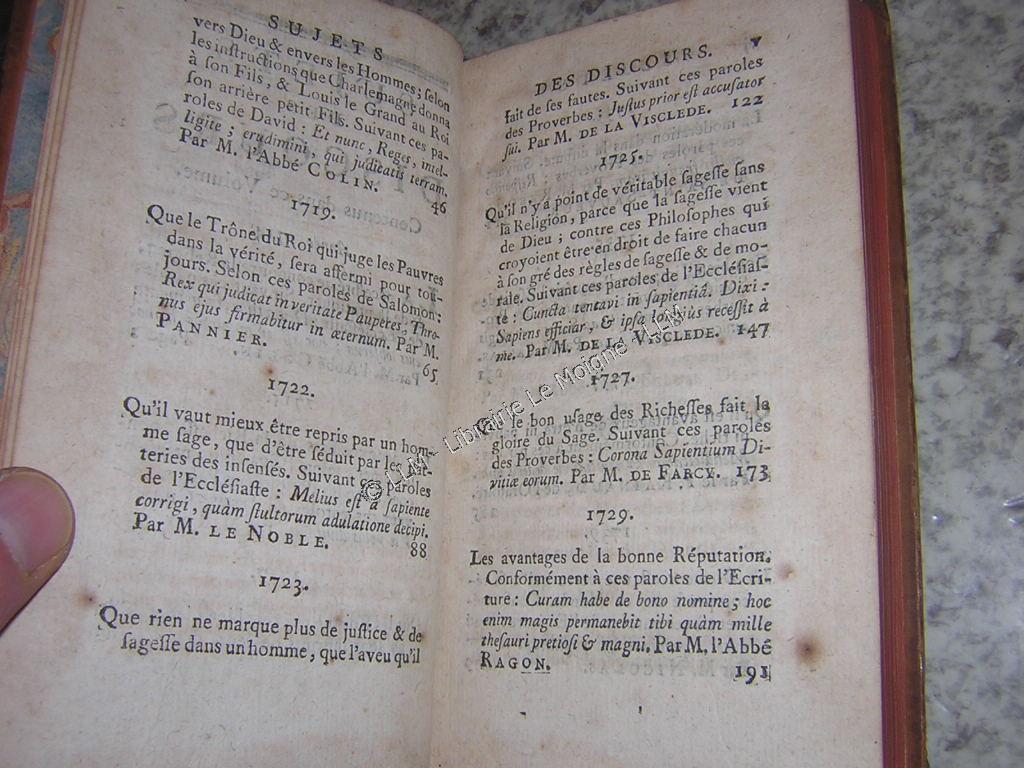 SUJETS
vers Dieu & envers les Hommes; ſelon
les inſtructions que Charlemagne donna
à ſon Fils, & Louis le Grand au Roi
ſon arrière petit Fils. Suivant ces pa-
roles de David : Et nunc, Reges, intel-
ligite ; erudimini, qui judicatis terram.
Par M. l'Abbé COLIN. 46
1719.
Que le Trône du Roi qui juge les Pauvres
dans la vérité, ſera affermi pour tou-
jours. Selon ces paroles de Salomon:
Rex qui judicat in veritate Pauperes, Thro-
nus ejus firmabitur in æternum. Par M.
PANNIER. 65
1722.
Qu'il vaut mieux être repris par un hom-
me ſage, que d'être ſéduit par les flat-
teries des inſenſés. Suivant ces paroles
de l'Eccléſiaſte : Melius eſt à ſapiente
corrigi, quàm ſtultorum adulatione decipi.
Par M. LE NOBLE. 88
1723.
Que rien ne marque plus de juſtice & de
ſageſſe dans un homme, que l'aveu qu'il
DES DISCOURS. v
fait de ſes fautes. Suivant ces paroles
des Proverbes : Juſtus prior eſt accuſator
ſui. Par M. DE LA VISCLEDE. 122
1725.
Qu'il n'y a point de véritable ſageſſe ſans
la Religion, parce que la ſageſſe vient
de Dieu ; contre ces Philoſophes qui
croyoient être en droit de faire chacun
à ſon gré des règles de ſageſſe & de mo-
rale. Suivant ces paroles de l'Eccléſiaſ-
te : Cuncta tentavi in ſapientiâ. Dixi :
Sapiens efficiar, & ipſa longiùs receſſit à
me. Par M. DE LA VISCLEDE. 147
1727.
Que le bon uſage des Richeſſes fait la
gloire du Sage. Suivant ces paroles
des Proverbes : Corona Sapientium Di-
vitiæ eorum. Par M. DE FARCY. 173
1729.
Les avantages de la bonne Réputation.
Conformément à ces paroles de l'Ecri-
ture : Curam habe de bono nomine; hoc
enim magis permanebit tibi quàm mille
theſauri pretioſi & magni. Par M. l'Abbé
RAGON. 191
© LLM - Librairie Le Moigne - LLM